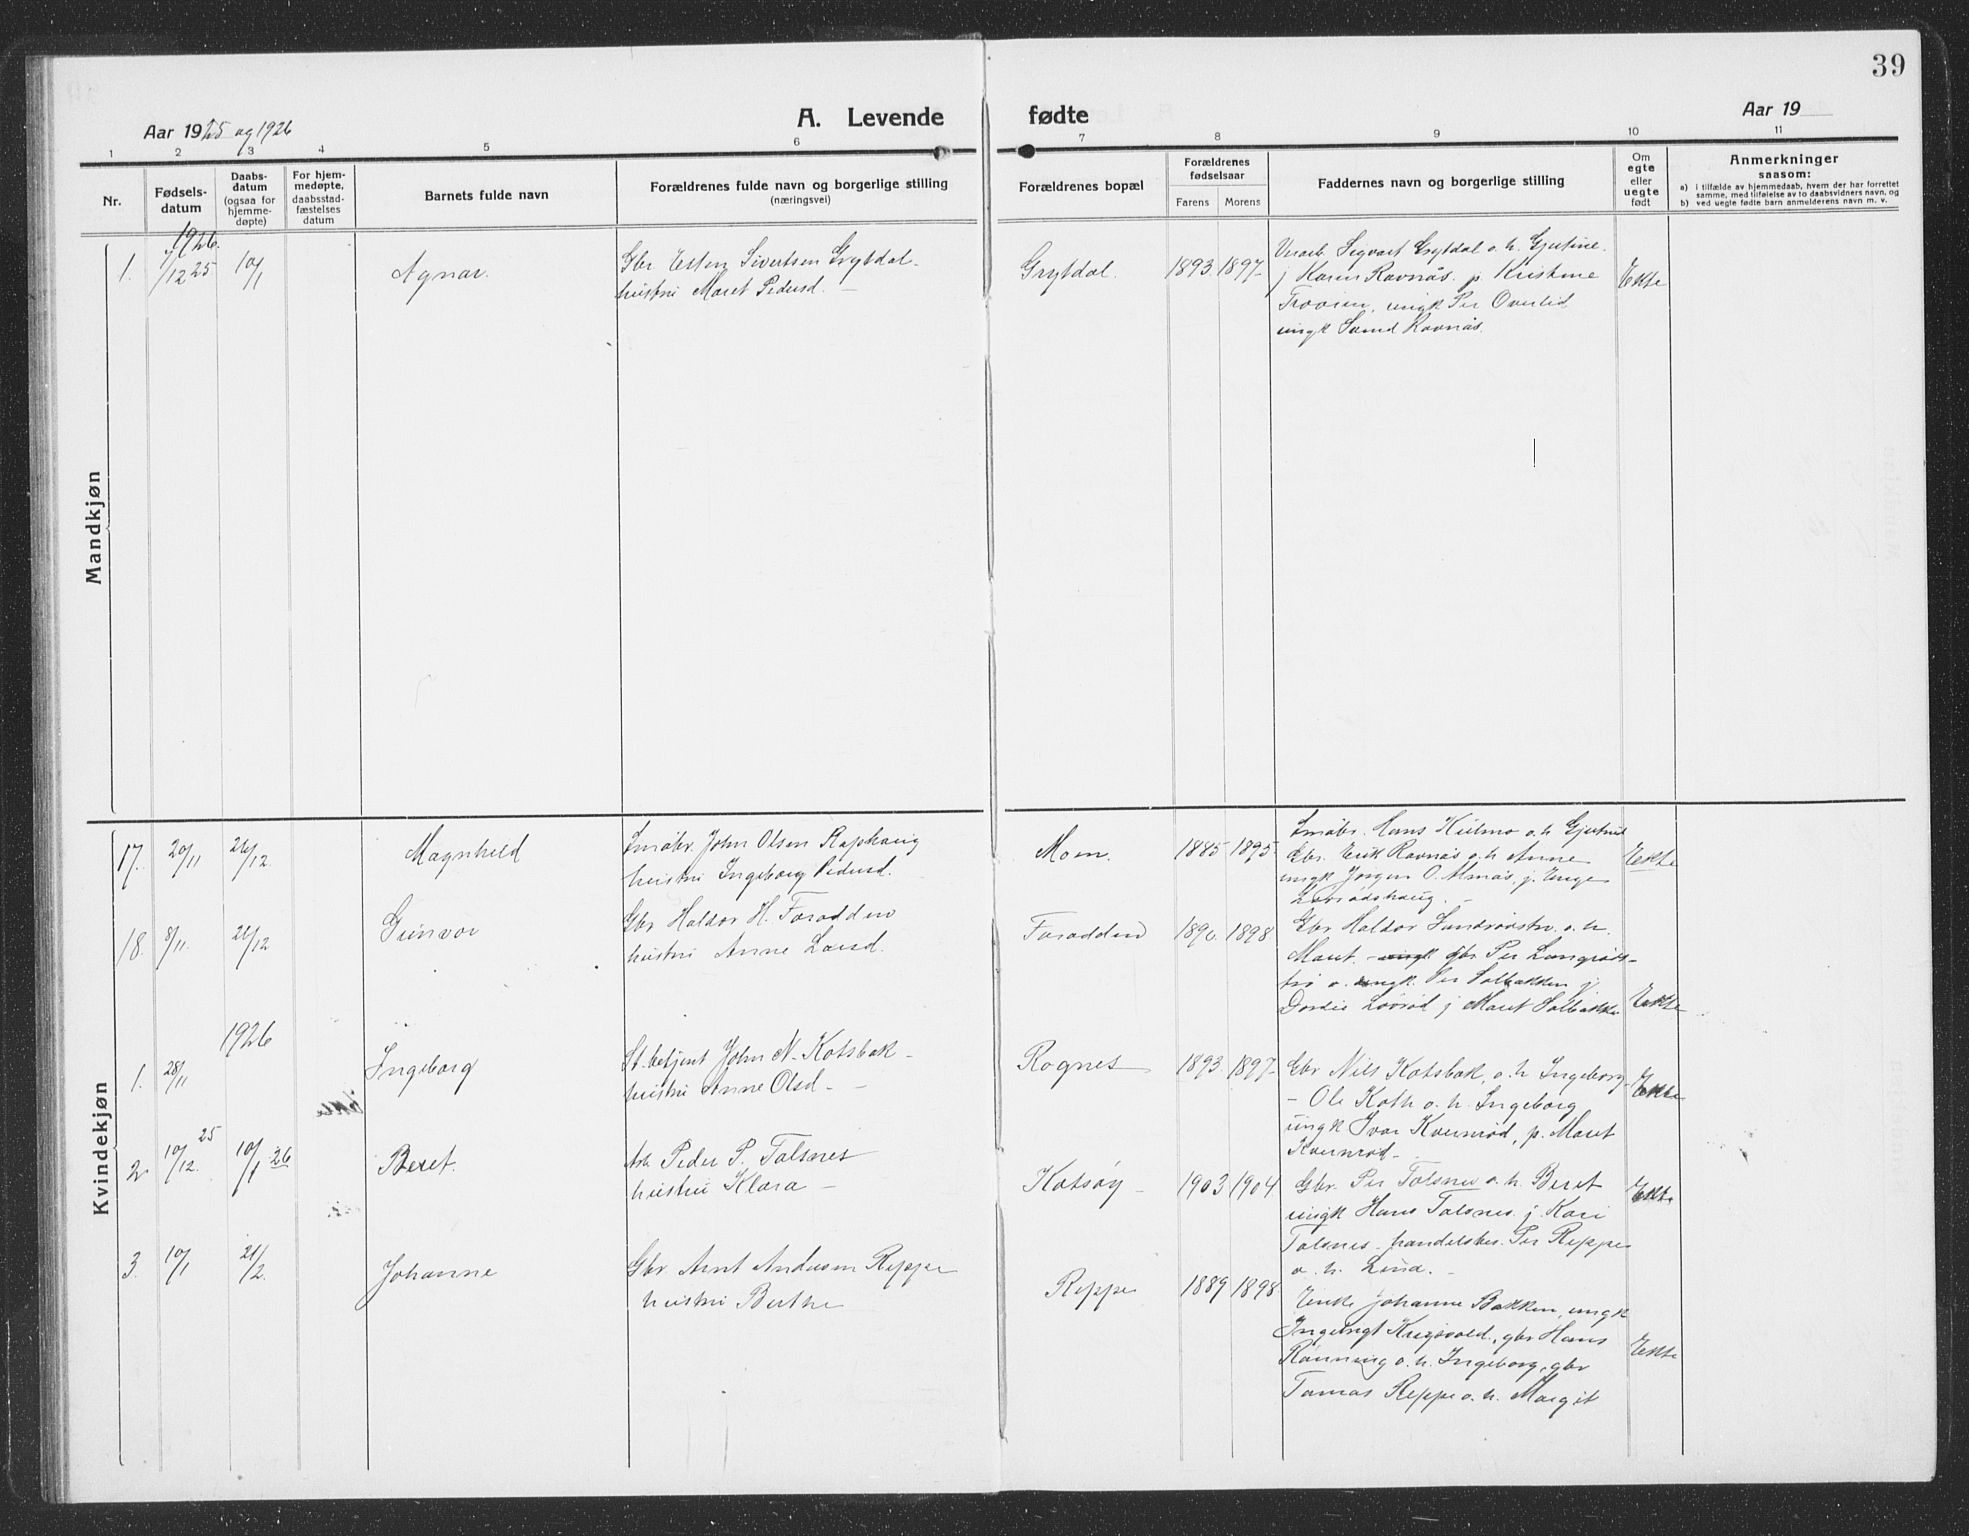 39
Aar 1925 og 1926
A. Levende fødte
Aar 19
1 2 3 4 5 6 7 8 9 10 11
Nr.
Fødsels-
datum
Daabs-
datum
(ogsaa for
hjemme-
døpte)
For hjem-
medøpte,
daabsstad-
fæstelses
datum
Barnets fulde navn
Forældrenes fulde navn og borgerlige stilling
(næringsvei)
Forældrenes bopæl
Forældrenes
fødselsaar
Farens Morens
Faddernes navn og borgerlige stilling
Om
egte
eller
uegte
født
Anmerkninger
saasom:
a) i tilfælde av hjemmedaab, hvem der har forrettet
samme, med tilføielse av to daabsvidners navn, og
b) ved uegte fødte barn anmelderens navn m. v.
Mandkjøn
1926
1. /12 25 10/1 Agnar.
Gbr Esten Sivertsen Grytdal
hustru Maret Pedersd. —
Grytdal. 1893. 1897
Sigvart Grytdal o. h. Gjertine
j Karen Ravnås. p. Kristine
ungk Per Overlid
ungk Svend Ravnås.
Ekte
Kvindekjøn
17. 20/11 26/12 Magnhild
Småbr. John Olsen Rephaug
hustru Ingeborg Pedersd.
Moen. 1885 1895.
Småbr. Hans Kulmo o. h Gjertrud
Gbr. Erik Ravnås o. h Anne
ungk Jørgen O. Almås, j. Inge
Ekte
18. 8/11. 26/12 Gunvor
Gbr Haldor H. Foradden
hustru Anne Larsd.
Foradden 1890. 1898
Gbr Haldor Sundrøstn. o. h.
Maret. — ungk gbr Per Langrøds-
trø o. ungk. Per Solbakken j
Dordi Løvrød j Maret Solbakken
Ekte
1926
1. 28/11 Ingeborg
St. betjent John N. Kotsbak —
hustru Anne Olsd —
Rognes 1893. 1897
Gbr Nils Kotsbak, o. h Ingeborg
— Ole Koth o. h. Ingeborg
ungk Ivar Kvernrød, p. Maret
Kvernrød —
Ekte
2 10/12. 25 10/1 26 Beret.
Arb. Peder P. Talsnes
hustru Klara —
Kotsøy — 1903 1904
Gbr. Per Talsnes o. h. Beret
ungk Hans Talsnes. j. Kari
Talsnes. handelsbes. Per Reppe
o. h. Lina. —
Ekte
3. 10/1 21/2. Johanne
Gbr. Arnt Andersen Reppe
hustru Berthe
Reppe 1889 1898
Enke Johanne Bakken, ungk
Ingebrigt Krigsvold, gbr Hans
Rønning o. h. Ingeborg, gbr
Tomas Reppe o. h. Margit
Ekte